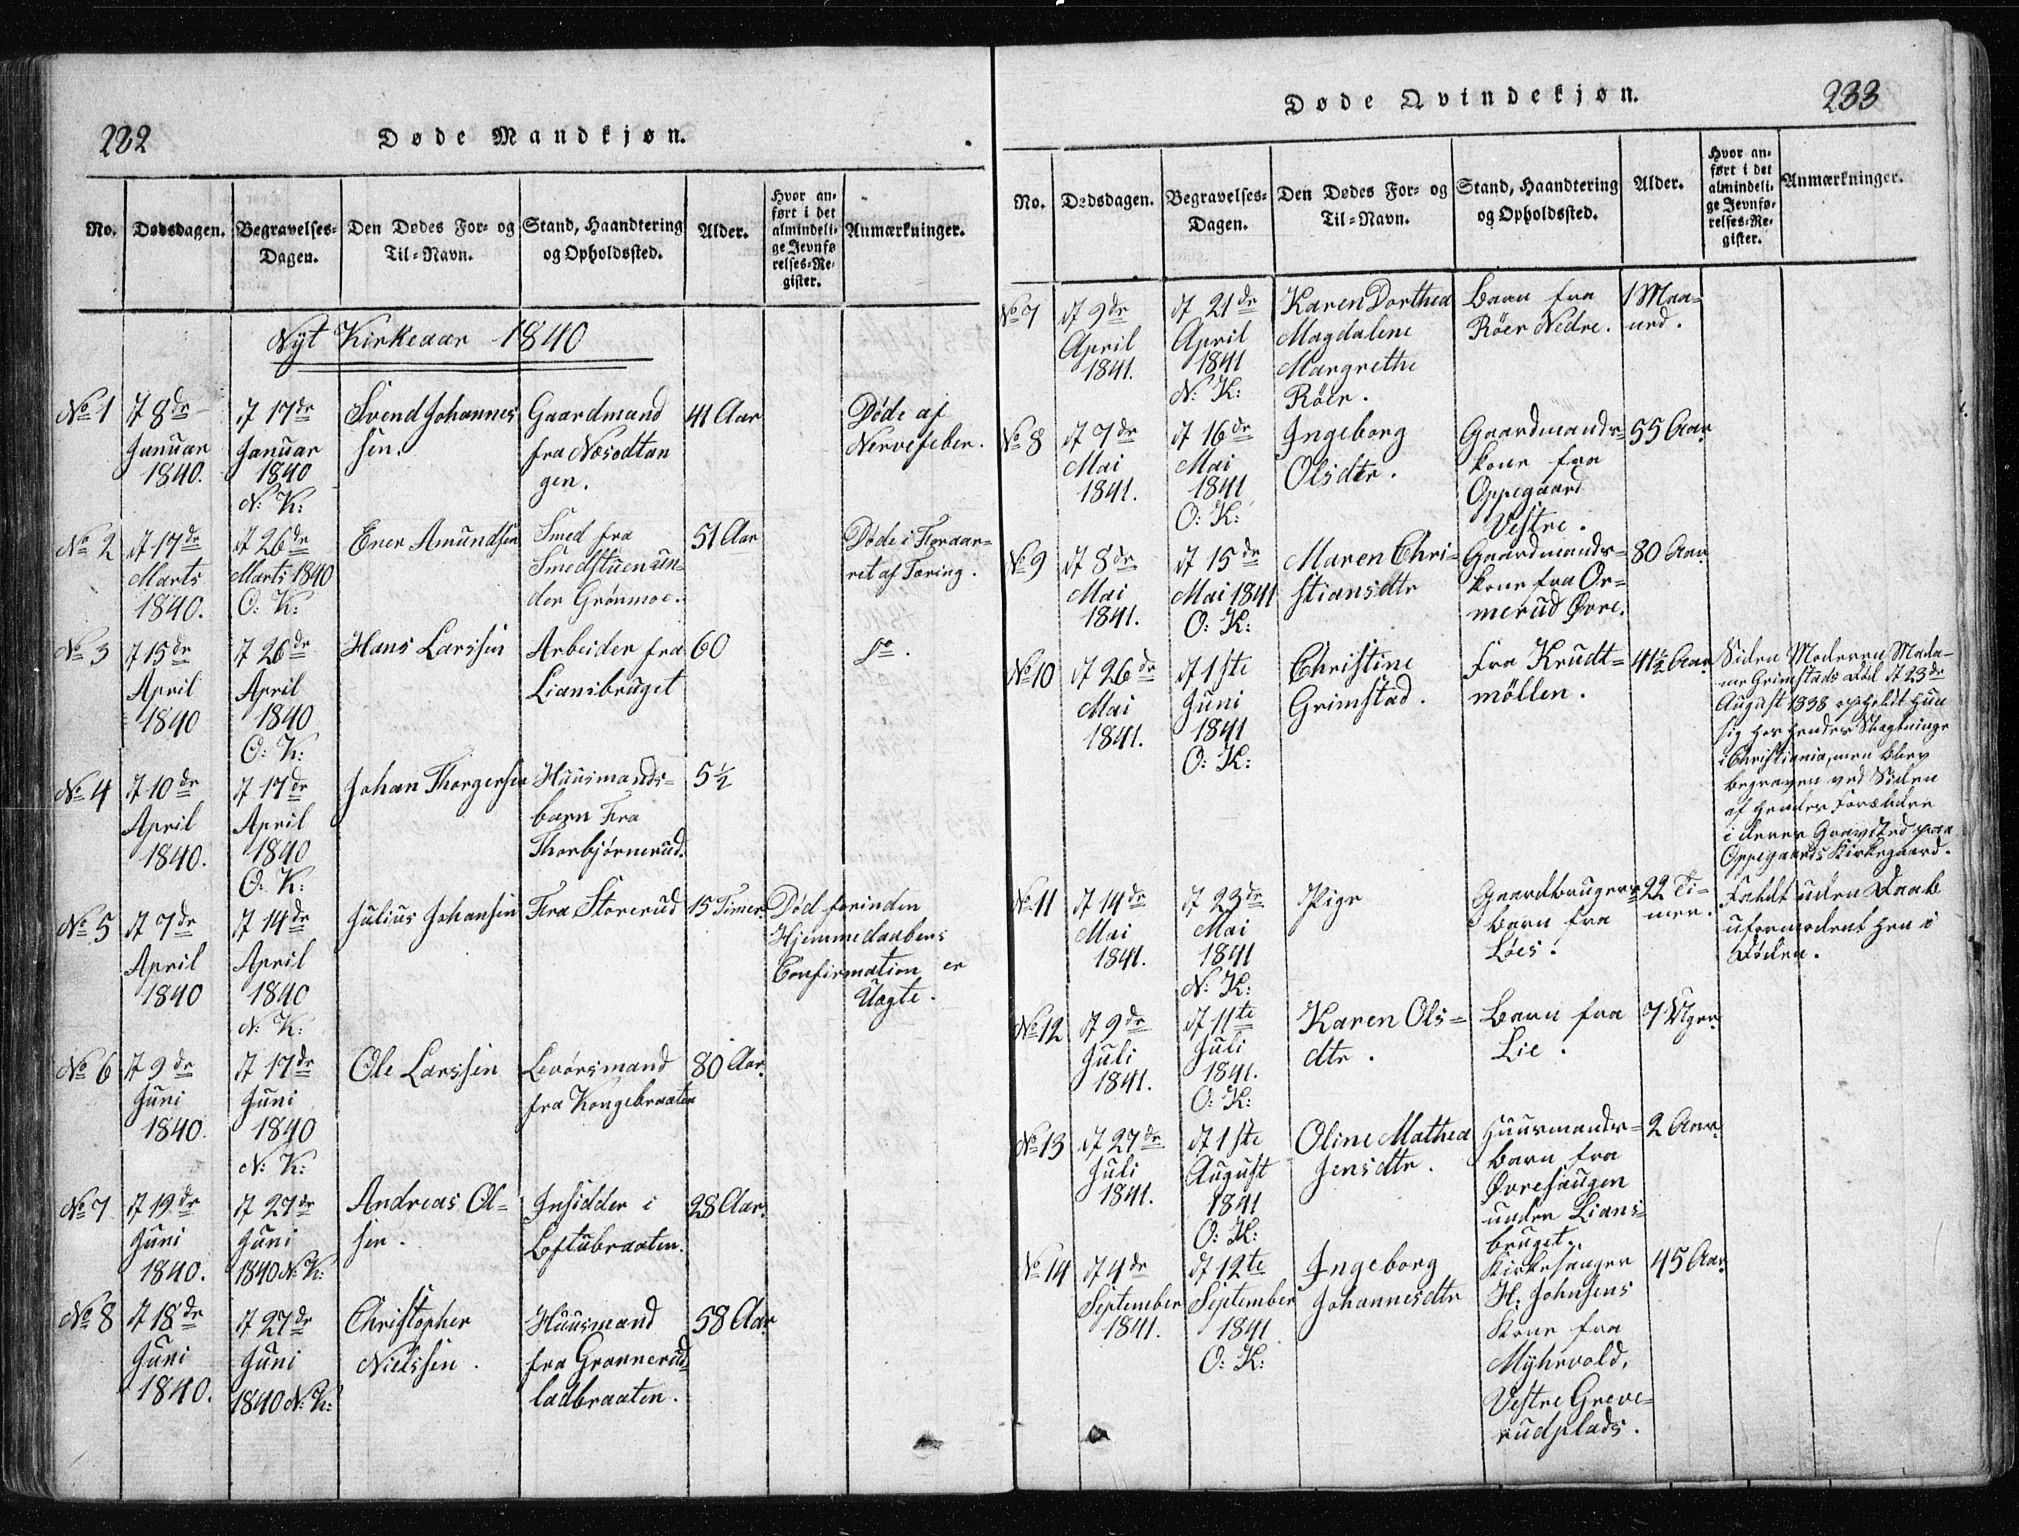 222
Døde Mandkjøn.
No.
Dødsdagen.
Begravelses-
Dagen.
Den Dødes For- og
Til-Navn.
Stand, Haandtering
og Opholdssted.
Alder.
Hvor an-
ført i det
almindeli-
ge Jevnfø
relses-Re-
gister.
Anmærkninger.
Nyt Kirkeaar 1840
No 1
d 8de
Januar
1840.
d 17de
Januar
1840
N: K:
Svend Johannes
sen.
Gaardmand
fra Næsodtan
gen.
41 Aar
Døde af
Nervefeber.
No 2
d 17de
Marts
1840.
d 26de
Marts 1840
O: K:
Ener Amundsen
Smed fra
Smedstuen un-
der Grønmoe.
51 Aar
Døde i Foraar-
ret af Tæring.
No 3
d 15de
April
1840
d 26de
April
1840
O: K:
Hans Larssen
Arbeider fra
Liansbruget
60
do.
No 4
d 10de
April
1840.
d 17de
April
1840
O: K:
Johan Thorgersen
Huusmands-
barn Fra
Thorbjørnerud.
5 1/2
No 5
d 7de
April
1840
d 14de
April
1840
N: K:
Julius Johansen
Fra Storerud
15 Timer
Død forinden
Hjemmedaabens
Confirmation er
Uægte.
No 6
d 9de
Juni
1840.
d 17de
Juni
1840
N: K:
Ole Larssen
Levørsmand
fra Kongebraaten
80 Aar.
No 7
d 19de
Juni
1840.
d 27de
Juni
1840 N: K:
Andreas Ol-
sen.
Insidder i
Loftubraaten.
28 Aar.
No 8
d 18de
Juni
1840.
d 27de
Juni
1840 N: K:
Christopher
Nielssen.
Huusmand
fra Grønnerud
ladbraaten.
58 Aar
Døde Qvindekjøn.
233
No.
Dødsdagen.
Begravelses-
Dagen.
Den Dødes For- og
Til-Navn.
Stand, Haandtering
og Opholdssted.
Alder.
Hvor an-
ført i det
almindeli-
ge Jevnfø-
relses-Re-
gister.
Anmærkninger.
No 7
d 9de
April
1841.
d 21de
April
1841
N: K:
Karen Dorthea
Magdalene
Margrethe
Röer.
Barn fra
Röer Nedre.
1 Maa-
ned.
No 8
d 7de
Mai
1841.
d 16de
Mai
1841
O: K:
Ingeborg
Olsdtr.
Gaardmands-
kone fra
Oppegaard
Vestre.
55 Aar.
No 9
d 8de
Mai
1841.
d 15de
Mai 1841
O: K:
Maren Chri-
stiansdtr
Gaardmands-
kone fra Or-
merud Øvre.
80 Aar
No 10
d 26de
Mai
1841.
d 1ste
Juni
1841
O: K:
Christine
Grimstad.
Fra Krudt-
möllen.
41 1/2 Aar.
Siden Moderen Mada-
me Grimstads Död d 23de
August 1838 opholdt hun
sig hos hendes Slægtninge
i Christiania, men blev
begraven ved Siden
af hendes Forældre
i deres Gravsted paa
Oppegaards Kirkegaard.
No 11
d 14de
Mai
1841.
d 23de
Mai
1841
N: K:
Pige
Gaardbrugers
Barn fra
Löes.
22 Ti-
mer.
Faldt uden Daab
uformodent hen i
Döden.
No 12
d 9de
Juli
1841.
d 11te
Juli
1841.
O: K:
Karen Ols-
dtr.
Barn fra
Lie.
7 Uger.
No 13
d 27de
Juli
1841.
d 1ste
August
1841
O: K:
Oline Mathea
Jensdtr.
Huusmands-
barn fra
Øvresaugen
under Lians-
bruget.
2 Aar.
No 14
d 4de
September
1841.
d 12te
September
1841.
O: K:
Ingeborg
Johannesdtr
Kirkesanger
H. Johnsens
Kone fra
Myhrvold,
Vestre Greve-
rudplads.
45 Aar.